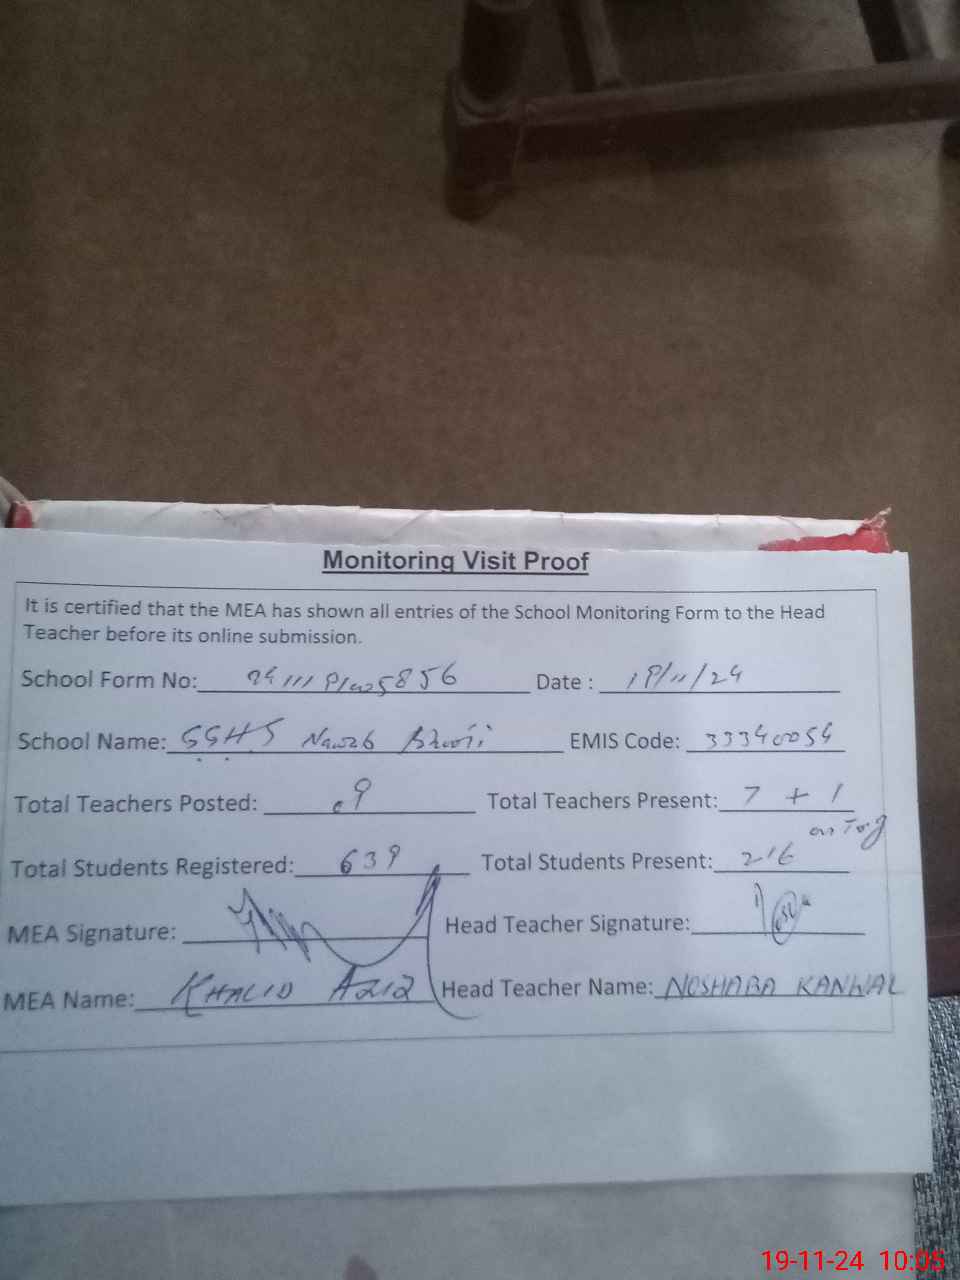 Monitoring Visit Proof
It is certified that the MEA has shown all entries of the School Monitoring Form to the Head
Teacher before its online submission.
School Form No: Date : 19/11/24
School Name: GGHS Nawab EMIS Code: 33340054
Total Teachers Posted: 09 Total Teachers Present: 7 + 1
Total Students Registered: 639 Total Students Present: 216
MEA Signature: Head Teacher Signature:
MEA Name: KHALID AZIZ Head Teacher Name: NOSHABA KANWAL
19-11-24 10:05